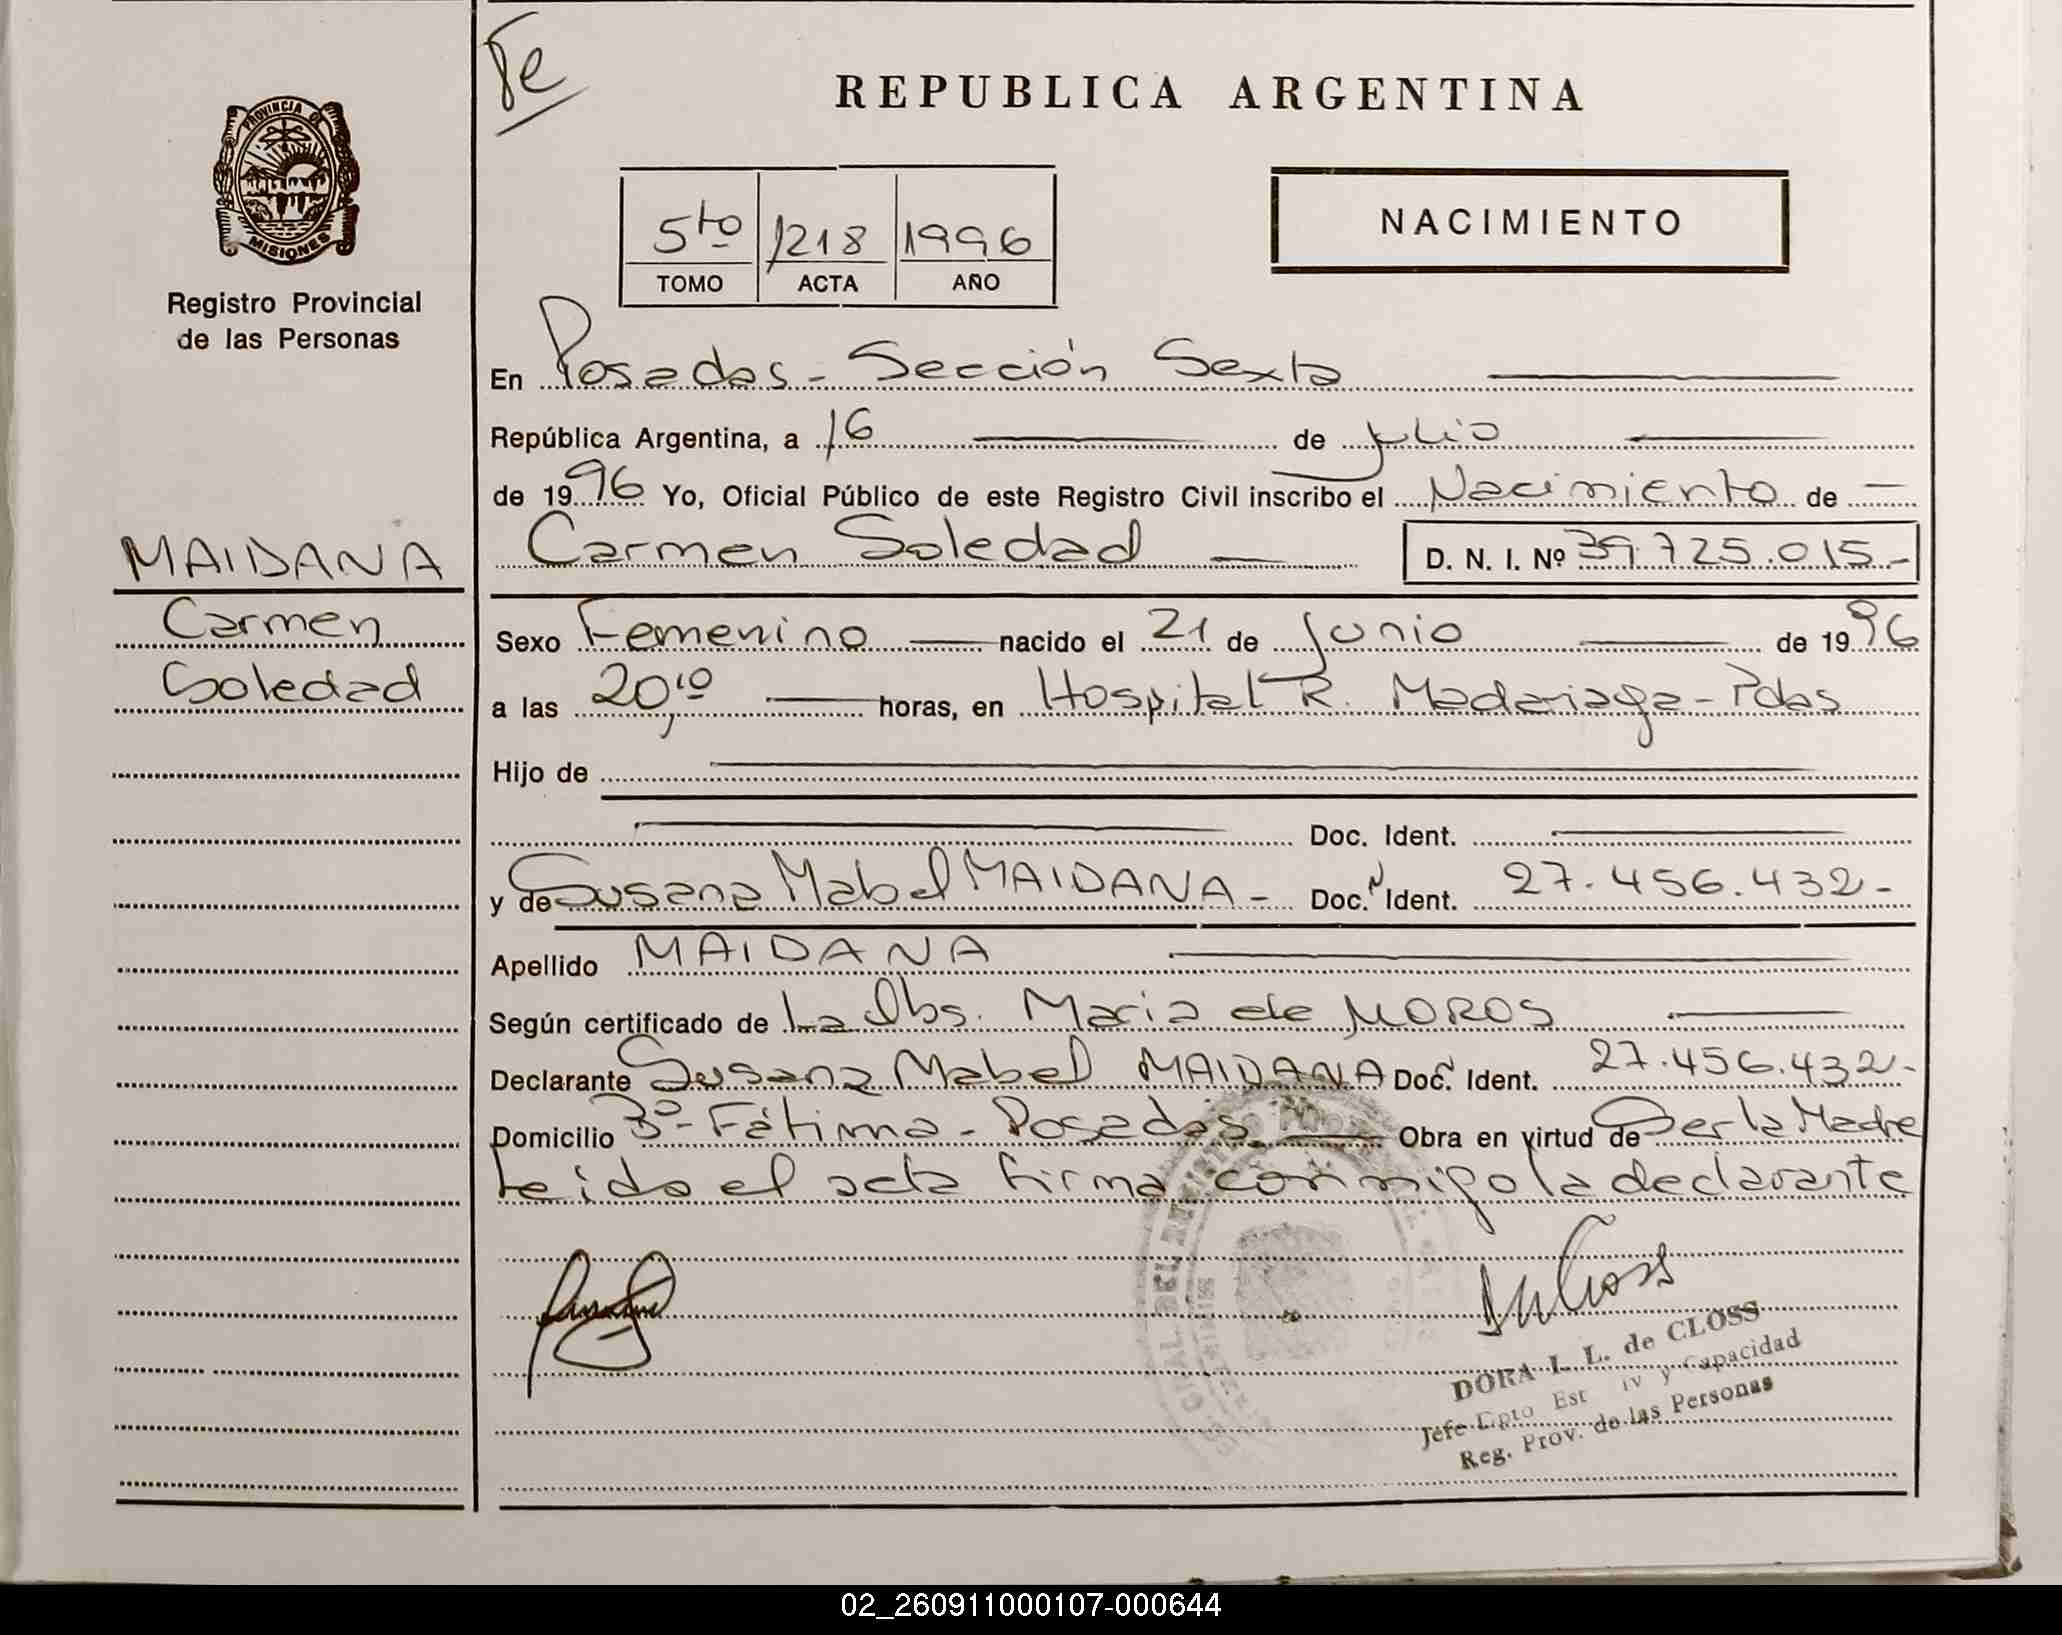 REPUBLICA ARGENTINA
PROVINCIA DE
MISIONES
Registro Provincial
de las Personas
5to 1218 1996
TOMO ACTA AÑO
NACIMIENTO
En Posadas - Sección Sexta
República Argentina, a 16 de julio
de 1996 Yo, Oficial Público de este Registro Civil inscribo el Nacimiento de
Carmen Soledad D. N. I. Nº 39.725.015.-
MAIDANA
Carmen
Soledad
Sexo Femenino nacido el 21 de Junio de 1996
a las 20,10 horas, en Hospital R. Madariaga - Pdas
Hijo de
Doc. Ident.
y de Susana Mabel MAIDANA - Doc. Ident. 27.456.432-
Apellido MAIDANA
Según certificado de La Obs. Maria de MOROS
Declarante Susana Mabel MAIDANA Doc. Ident. 27.456.432-
Domicilio Bº- Fátima - Posadas Obra en virtud de Ser la Madre
leido el acta firma conmigo la declarante
DORA I. L. de CLOSS
Jefe Dpto Est Civ y Capacidad
Reg. Prov. de las Personas
02_260911000107-000644